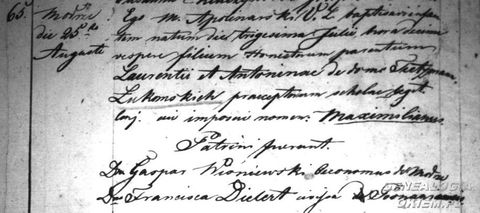 65. Modrze Ego M. Apolinarski V. L. baptisavi infan
die 25ta tem natum die trigesima Julii hora decima
Augusti vespere filium Honestorum parentum
Laurentii et Antoninae de domo
Łukomskich praeceptorum scholae legit
conj. cui imposui nomen: Maximilianus.
Patrini fuerant.
Ds Gaspar Wisniewski Oeconomus de Modrze
Da Francisca Dielert uxor
GENEALOGIA
OKIEM.PL